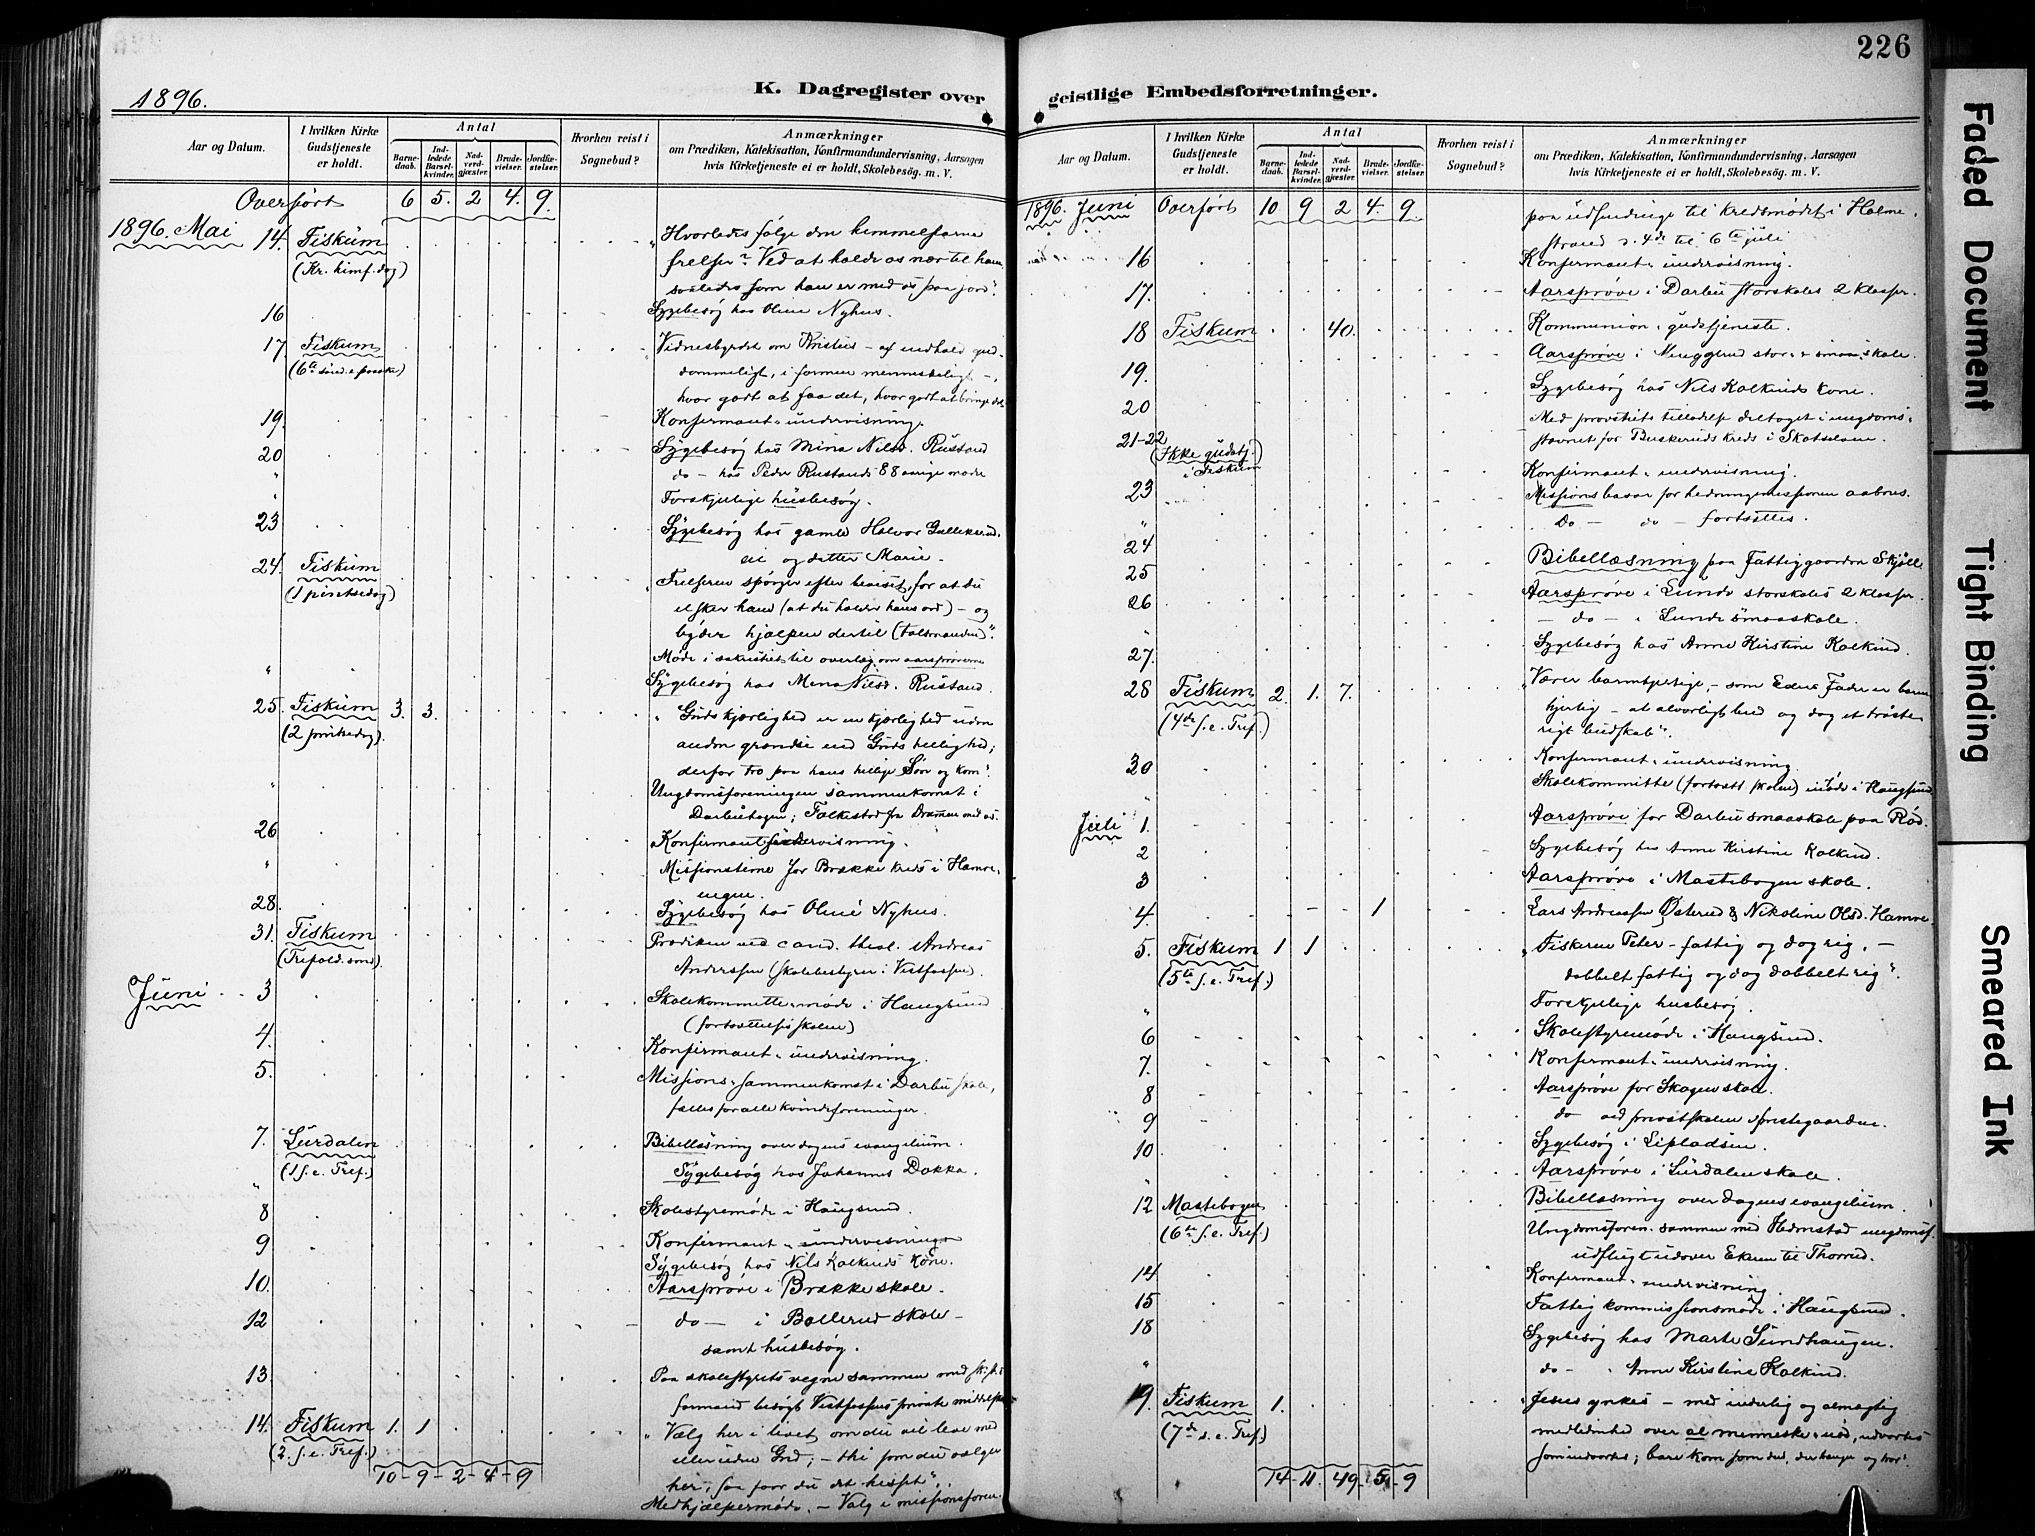 226
1896.
K. Dagregister over
geistlige Embedsforretninger.
Aar og Datum.
I hvilken Kirke Gudstjeneste er holdt.
Antal
Barnedaab.
Indledede Barselkvinder.
Nadverdgjæster.
Brudevielser.
Jordfæstelser.
Hvorhen reist i Sognebud?
Anmærkninger
om Prædiken, Katekisation, Konfirmandundervisning, Aarsagen
hvis Kirketjeneste ei er holdt, Skolebesøg. m. V.
Overført 6 5. 2 4. 9.
1896. Mai 14. Fiskum „Hvorledes følge den himmelfarne
(Kr. himf. dag) frelser? Ved at holde os nær til ham
saaledes som han er med os paa jord".
16 Sygebesøg hos Oline Nyhus.
17 Fiskum „Vidnesbyrdet om Kristus - af indhold gud-
(6te sønd. e. paaske) dommeligt, i formen menneskeligt -,
hvor godt at faa det, hvor godt at bringe det
19. Konfirmant-undervisning.
20 Sygebesøg hos Mina Nilsd. Rustand
" do - hos Peder Rustands 88 aarige moder
" Forskjellige husbesøg.
23 Sygebesøg hos gamle Halvor
og datter Marie.
24. Fiskum „Frelseren spørger efter beviset for at du
(1 pintsedag) elsker ham (at du holder hans ord) - og
byder hjælpen dertil (talsmanden)".
" Møde i sakristiet til overlæg om aarsprøverne
Sygebesøg hos Mina Nilsd. Rustand.
25. Fiskum 3. 3. „Guds kjærlighed er en kjærlighed uden
(2 pintsedag). anden grændse end Guds hellighed;
derfor tro paa hans hellige Søn og kom".
" Ungdomsforeningen sammenkomst i
Darbuhagen; Falkestad fra Drammen med os.
26 Konfirmantundervisning.
" Missionstime for Brække kreds i Hamre-
engen.
28. Sygebesøg hos Oline Nyhus.
31. Fiskum Prædiken ved cand. theol. Andreas
(Trefold. sønd). Anderssen (skolebestyrer i Vestfossen).
Juni 3 Skolekommitte-møde i Haugsund
(fortsættelsesskolen)
4. Konfirmant-undervisning.
5. Missions-sammenkomst i Darbu skole,
fælles for alle kvindeforeninger.
7. Lurdalen Bibellæsning over dagens evangelium.
(1 s. e. Tref.) Sygebesøg hos Johannes Dokka.
8 Skolestyremøde i Haugsund.
9 Konfirmant-undervisning
Sygebesøg hos Nils Kolkinds kone.
10. Aarsprøve i Brække skole.
12 do - i Bollerud skole -
samt husbesøg.
13 Paa skolestyrets vegne sammen med
formand besøgt Vestfossens private middelskole
14. Fiskum 1. 1 „Vælg her i livet om du vil leve med
(2. s. e. Tref.) eller uden Gud, - thi som du vælger
10 - 9 - 2 - 4 - 9 her, saa faar du det hisset".
Medhjælpermøde. - Valg i missionsforen.
Aar og Datum.
I hvilken Kirke Gudstjeneste er holdt.
Antal
Barnedaab.
Indledede Barselkvinder.
Nadverdgjæster.
Brudevielser.
Jordfæstelser.
Hvorhen reist i Sognebud?
Anmærkninger
om Prædiken, Katekisation, Konfirmandundervisning, Aarsagen
hvis Kirketjeneste ei er holdt, Skolebesøg. m. V.
1896. Juni Overført 10 9 2 4. 9. paa udsendinge til kredsmødet i Holme-
strand d. 4de til 6te juli
16 Konfirmant-undervisning.
17. Aarsprøve i Darbu storskoles 2 klasser.
18 Fiskum 40. Kommunion-gudstjeneste.
Aarsprøve i Muggerud stor- & smaaskole.
19. Sygebesøg hos Nils Kolkinds kone.
20 Med provstiets tilladelse deltaget i ungdoms-
21-22 (Ikke gudstj. i Fiskum stævnet for Buskeruds kreds i Skotselven.
Konfirmant-undervisning.
23 Missionsbasar for hedningemissionen aabnes.
" Do - do - fortsættes.
24 Bibellæsning paa Fattiggaarden Skjøll
25 Aarsprøve i Lunde storskoles 2 klasser.
26 - do - i Lunde smaaskole.
" Sygebesøg hos Anne Kirstine Kolkind.
27.
28 Fiskum 2. 1. 7. „Værer barmhjertige, - som Eders Fader er barm-
(4de s. e. Tref.) hjertig - et alvorligt bud og dog et trøste-
rigt budskab".
30 Konfirmant-undervisning.
" Skolekommitte (fortsatt skolen) møde i Haugsund
Juli 1. Aarsprøve for Darbu smaaskole paa Rød.
2 Sygebesøg hos Anne Kirstine Kolkind.
3 Aarsprøve i Mastebogen skole.
4. 1 Lars Andreassen Østerud & Nikoline Olsd. Hamre.
5. Fiskum 1 1 „Fiskeren Peter - fattig og dog rig, -
(5te s. e. Tref.) dobbelt fattig og dog dobbelt rig".
" Forskjellige husbesøg.
6 Skolestyremøde i Haugsund.
7. Konfirmant-undervisning.
8 Aarsprøve for Skagen skole.
9 do ved privatskolen Prestegaarden.
10 Sygebesøg i Lipladsen.
" Aarsprøve i Lurdalen skole.
12 Mastebogen Bibellæsning over dagens evangelium.
(6te s. e. Tref.) Ungdomsforen. sammen med Hedenstad ungdomsf.
udflugt udover Ekern til Thorrud.
14 Konfirmant-undervisning.
15 Fattigkommissionsmøde i Haugsund.
18 Sygebesøg hos Marte Sundhaugen.
" do - " Anne Kirstine Kolkind.
19. Fiskum 1. „Jesus ynkes - med inderlig og almægtig
(7de s. e. Tref.) medlidenhed over al menneske-nød, udvortes
14 - 11. - 49 - 5 - 9 som indvortes; bare kom som den, der hunger og tror".
Faded Document
Tight Binding
Smeared Ink